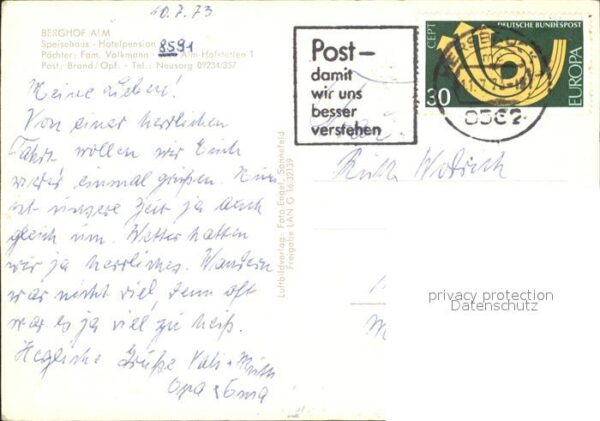 10.7.73
BERGHOF ALM
Speisehaus - Hotelpension 8591
Pächter: Fam. Volkmann Alm-Hofstetten 1
Post: Brand/Opf. - Tel.: Neusorg 09234/357
Meine Lieben!
Von einer herrlichen
Fahrt wollen wir Euch
wieder einmal grüßen. Nun
ist unsere Zeit ja auch
gleich um. Wetter hatten
wir ja herrliches. Wandern
war nicht viel, denn oft
war es ja viel zu heiß.
Herzliche Grüße
Opa + Oma
Luftbildverlag: Foto Engel, Sonnefeld
Freigabe LAN G 16-32139
Post-
damit
wir uns
besser
verstehen
CEPT
DEUTSCHE BUNDESPOST
EUROPA
30
8562
privacy protection
Datenschutz